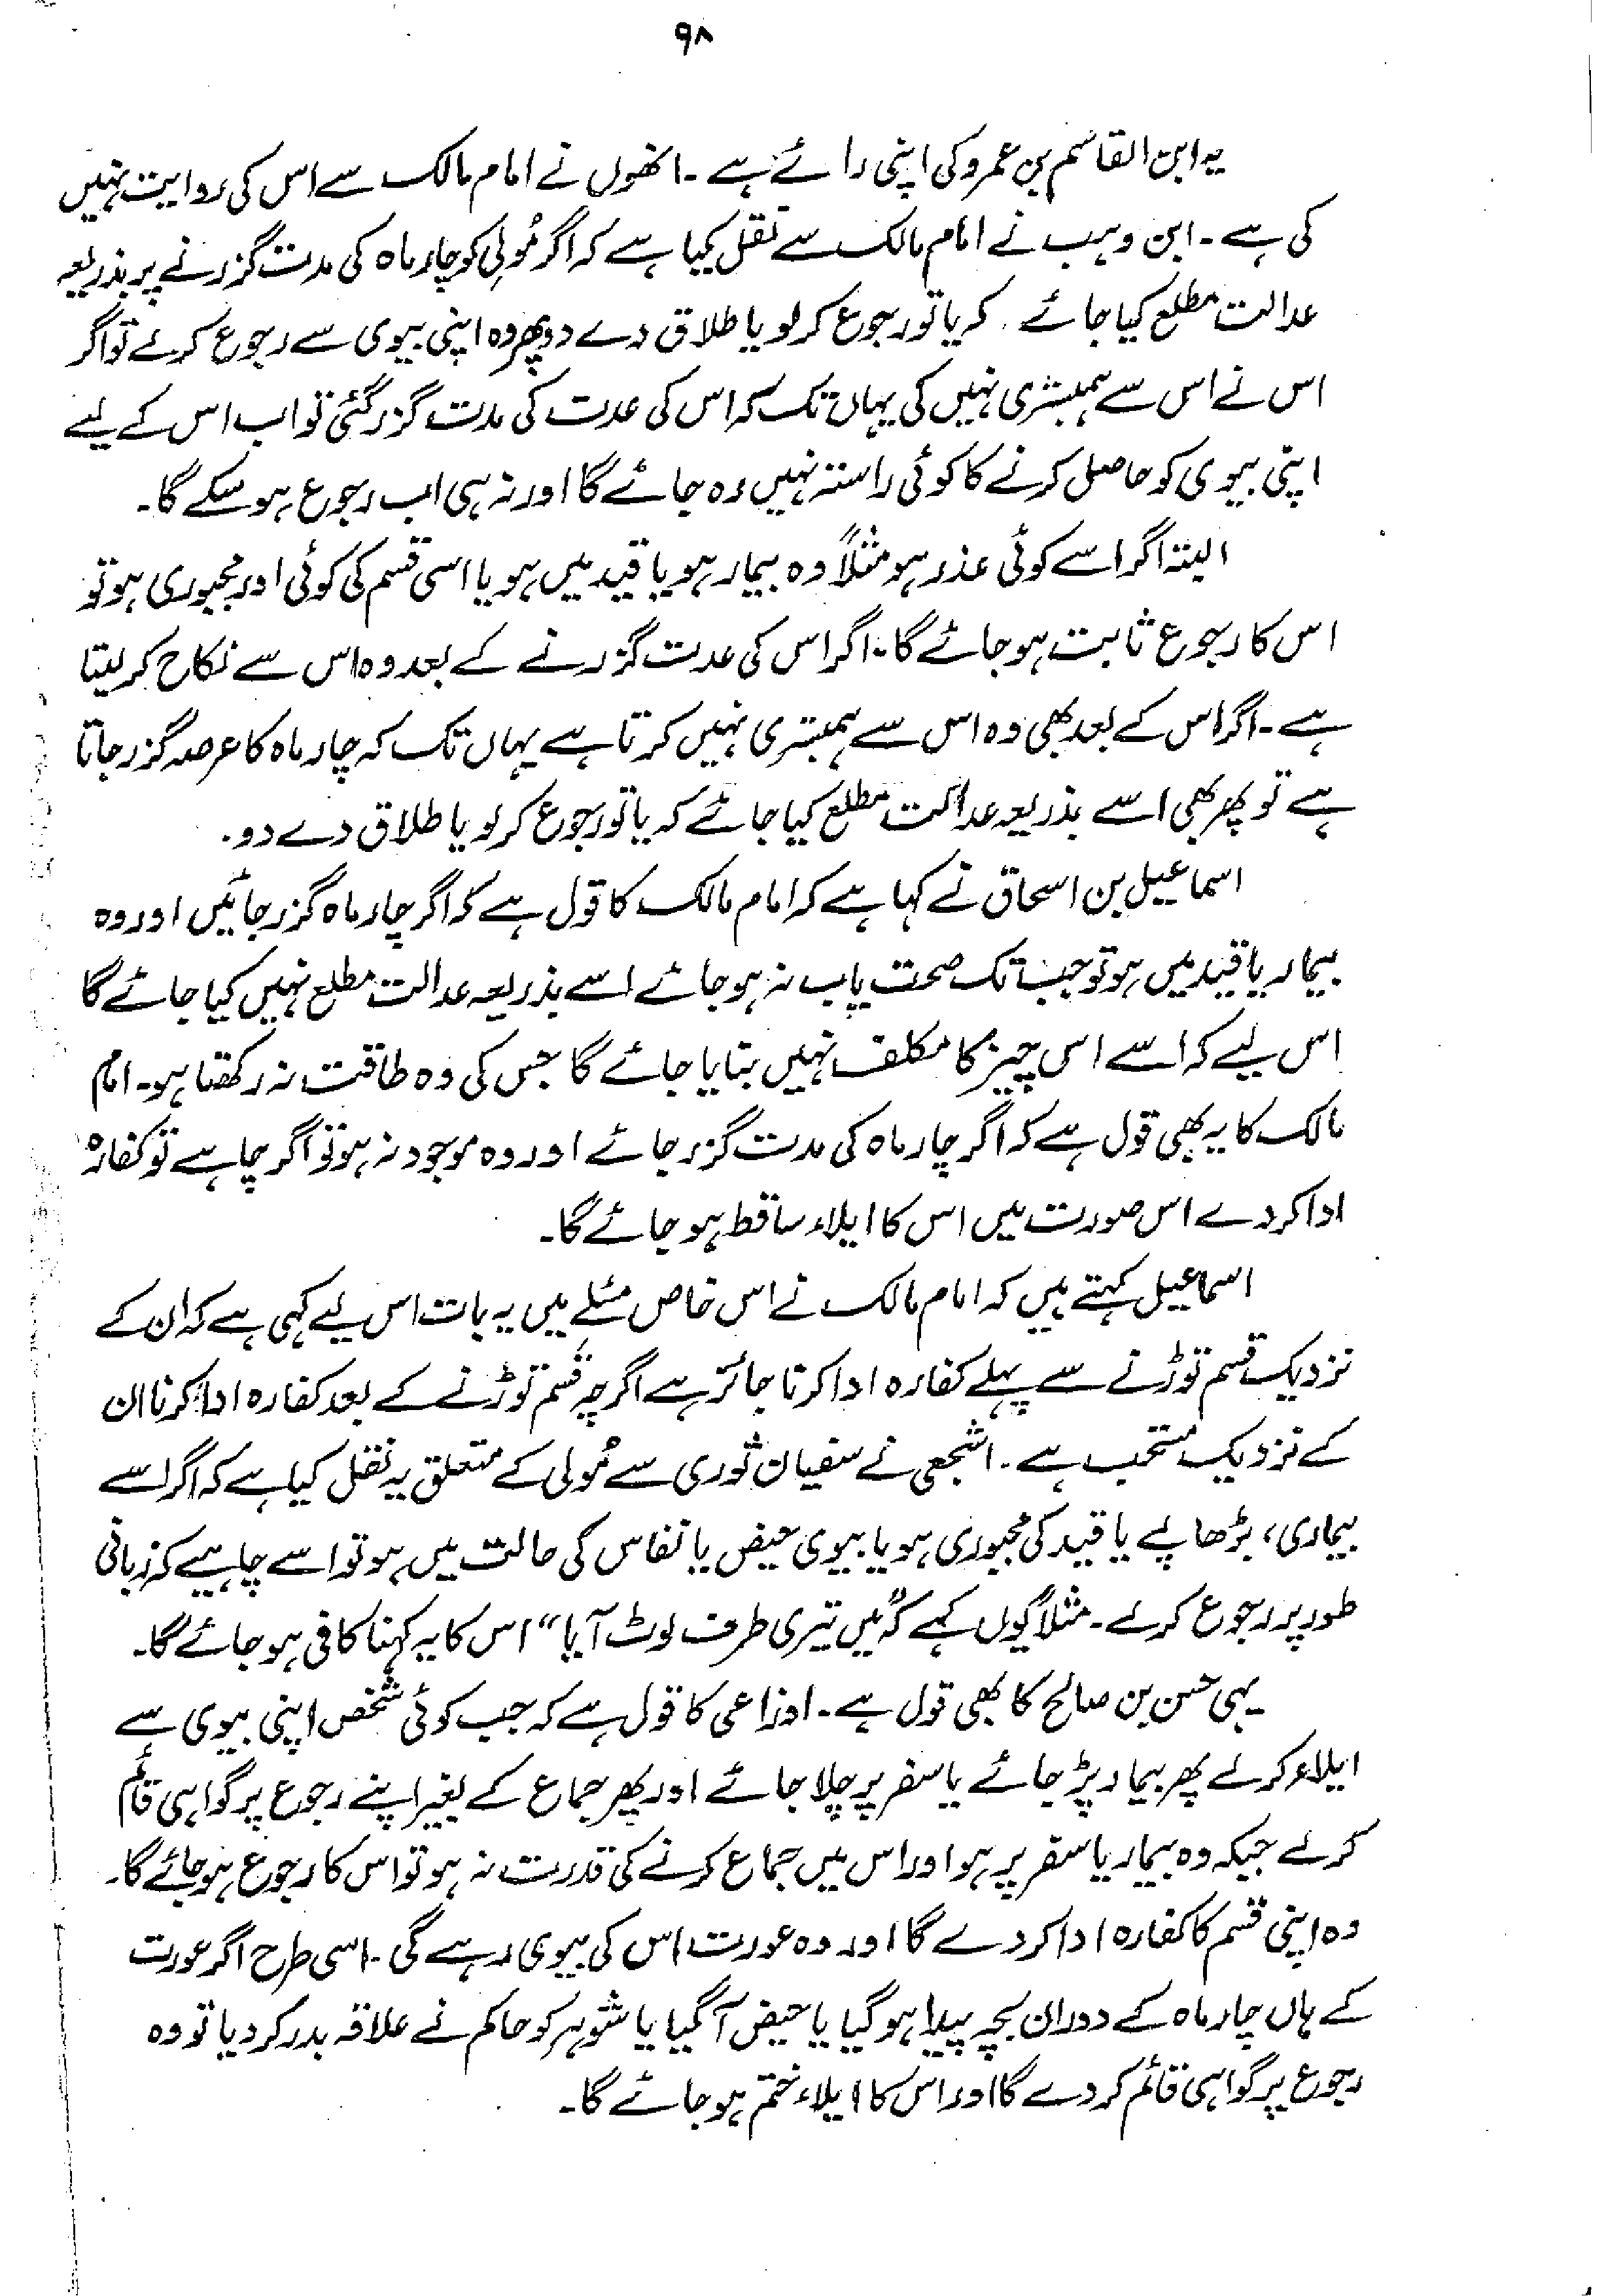 ۹۸
یہ ابن القاسم بن عمرو کی اپنی رائے ہے ۔ انھوں نے امام مالک سے اس کی روایت نہیں
کی ہے ۔ ابن وہب نے امام مالک سے نقل کیا ہے کہ اگر مُولِی کو چار ماہ کی مدت گزرنے پر بذریعہ
عدالت مطلع کیا جائے کہ یا تو رجوع کر لو یا طلاق دے دو پھر وہ اپنی بیوی سے رجوع کر لے تو اگر
اس نے اس سے ہمبستری نہیں کی یہاں تک کہ اس کی عدت کی مدت گزر گئی تو اب اس کے لیے
اپنی بیوی کو حاصل کرنے کا کوئی راستہ نہیں رہ جائے گا اور نہ ہی اب رجوع ہو سکے گا۔
البتہ اگر اسے کوئی عذر ہو مثلاً وہ بیمار ہو یا قید میں ہو یا اسی قسم کی کوئی اور مجبوری ہو تو
اس کا رجوع ثابت ہو جائے گا۔ اگر اس کی عدت گزرنے کے بعد وہ اس سے نکاح کر لیتا
ہے ۔ اگر اس کے بعد بھی وہ اس سے ہمبستری نہیں کرتا ہے یہاں تک کہ چار ماہ کا عرصہ گزر جاتا
ہے تو پھر بھی اسے بذریعہ عدالت مطلع کیا جائے کہ یا تو رجوع کر لو یا طلاق دے دو۔
اسماعیل بن اسحاق نے کہا ہے کہ امام مالک کا قول ہے کہ اگر چار ماہ گزر جائیں اور وہ
بیمار یا قید میں ہو تو جب تک صحت یاب نہ ہو جائے اسے بذریعہ عدالت مطلع نہیں کیا جائے گا
اس لیے کہ اسے اس چیز کا مکلف نہیں بنایا جائے گا جس کی وہ طاقت نہ رکھتا ہو۔ امام
مالک کا یہ بھی قول ہے کہ اگر چار ماہ کی مدت گزر جائے اور وہ موجود نہ ہو تو اگر چاہے تو کفارہ
ادا کر دے اس صورت میں اس کا ایلاء ساقط ہو جائے گا۔
اسماعیل کہتے ہیں کہ امام مالک نے اس خاص مسئلے میں یہ بات اس لیے کہی ہے کہ ان کے
نزدیک قسم توڑنے سے پہلے کفارہ ادا کرنا جائز ہے اگرچہ قسم توڑنے کے بعد کفارہ ادا کرنا ان
کے نزدیک مستحب ہے ۔ اشجعی نے سفیان ثوری سے مُولی کے متعلق یہ نقل کیا ہے کہ اگر اسے
بیماری، بڑھاپے یا قید کی مجبوری ہو یا بیوی حیض یا نفاس کی حالت میں ہو تو اسے چاہیے کہ زبانی
طور پر رجوع کر لے ۔ مثلاً یوں کہے کہ "میں تیری طرف لوٹ آیا" اس کا یہ کہنا کافی ہو جائے گا۔
یہی حسن بن صالح کا بھی قول ہے ۔ اوزاعی کا قول ہے کہ جب کوئی شخص اپنی بیوی سے
ایلاء کر لے پھر بیمار پڑ جائے یا سفر پر چلا جائے اور پھر جماع کے بغیر اپنے رجوع پر گواہی قائم
کر لے جبکہ وہ بیمار یا سفر پر ہو اور اس میں جماع کرنے کی قدرت نہ ہو تو اس کا رجوع ہو جائے گا۔
وہ اپنی قسم کا کفارہ ادا کر دے گا اور وہ عورت اس کی بیوی رہے گی ۔ اسی طرح اگر عورت
کے ہاں چار ماہ کے دوران بچہ پیدا ہو گیا یا حیض آ گیا یا شوہر کو حاکم نے علاقہ بدر کر دیا تو وہ
رجوع پر گواہی قائم کر دے گا اور اس کا ایلاء ختم ہو جائے گا۔